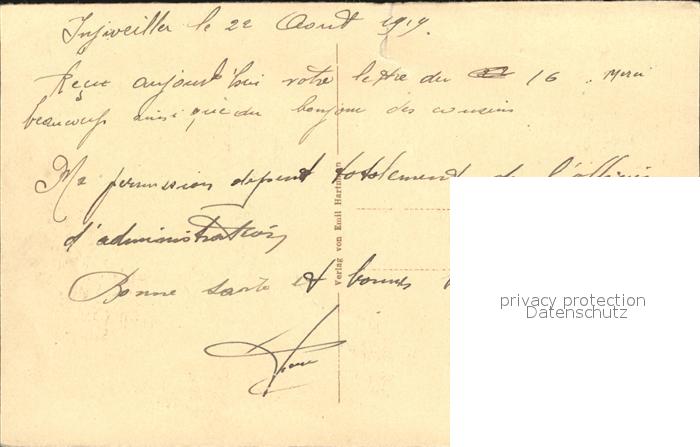 Injweiller le 22 Aout 1919.
Reçue aujourd'hui votre lettre du 16. Merci
beaucoup ainsi que du bonjour des cousins
Ma permission depend totalement de l'officier
d'administration
Bonne santé et bonnes
Verlag von Emil Hartmann
privacy protection
Datenschutz